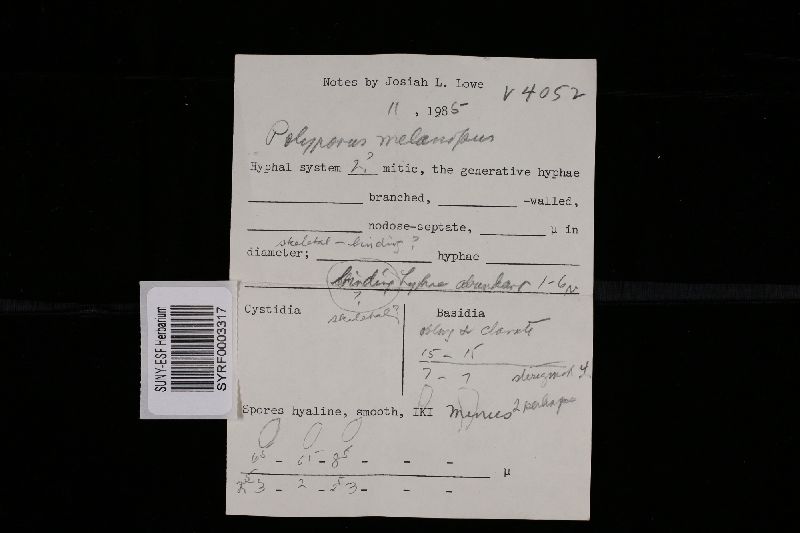 Notes by Josiah L. Lowe
V 4052
11 , 1985
Polyporus melanopus
Hyphal system 2? mitic, the generative hyphae
branched, -walled,
nodose-septate, µ in
skeletal - binding?
diameter; hyphae
binding hyphae abundant 1-6 µ
?
skeletal?
Cystidia
Basidia
clavate
15 - 15
7 - 7
4
Spores hyaline, smooth, IKI minus
2 perhaps
- - - - -
µ
- 2 - - -
SUNY-ESF Herbarium
SYRF0003317